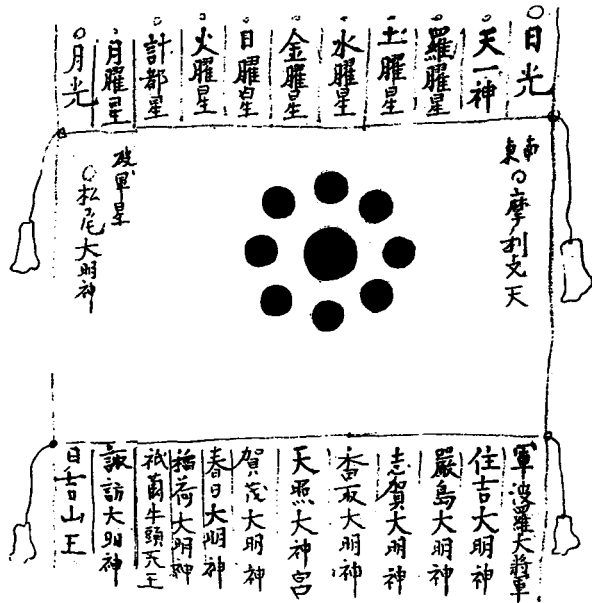 ○日光
天一神
羅曜星
土曜星
水曜星
金曜星
日曜星
火曜星
計都星
月曜星
○月光
東南
○摩利支天
破軍星
○松尾大明神
軍波羅大將軍
住吉大明神
嚴島大明神
志賀大明神
香取大明神
天照大神宮
賀茂大明神
春日大明神
稲荷大明神
祇園牛頭天王
諏訪大明神
日吉山王